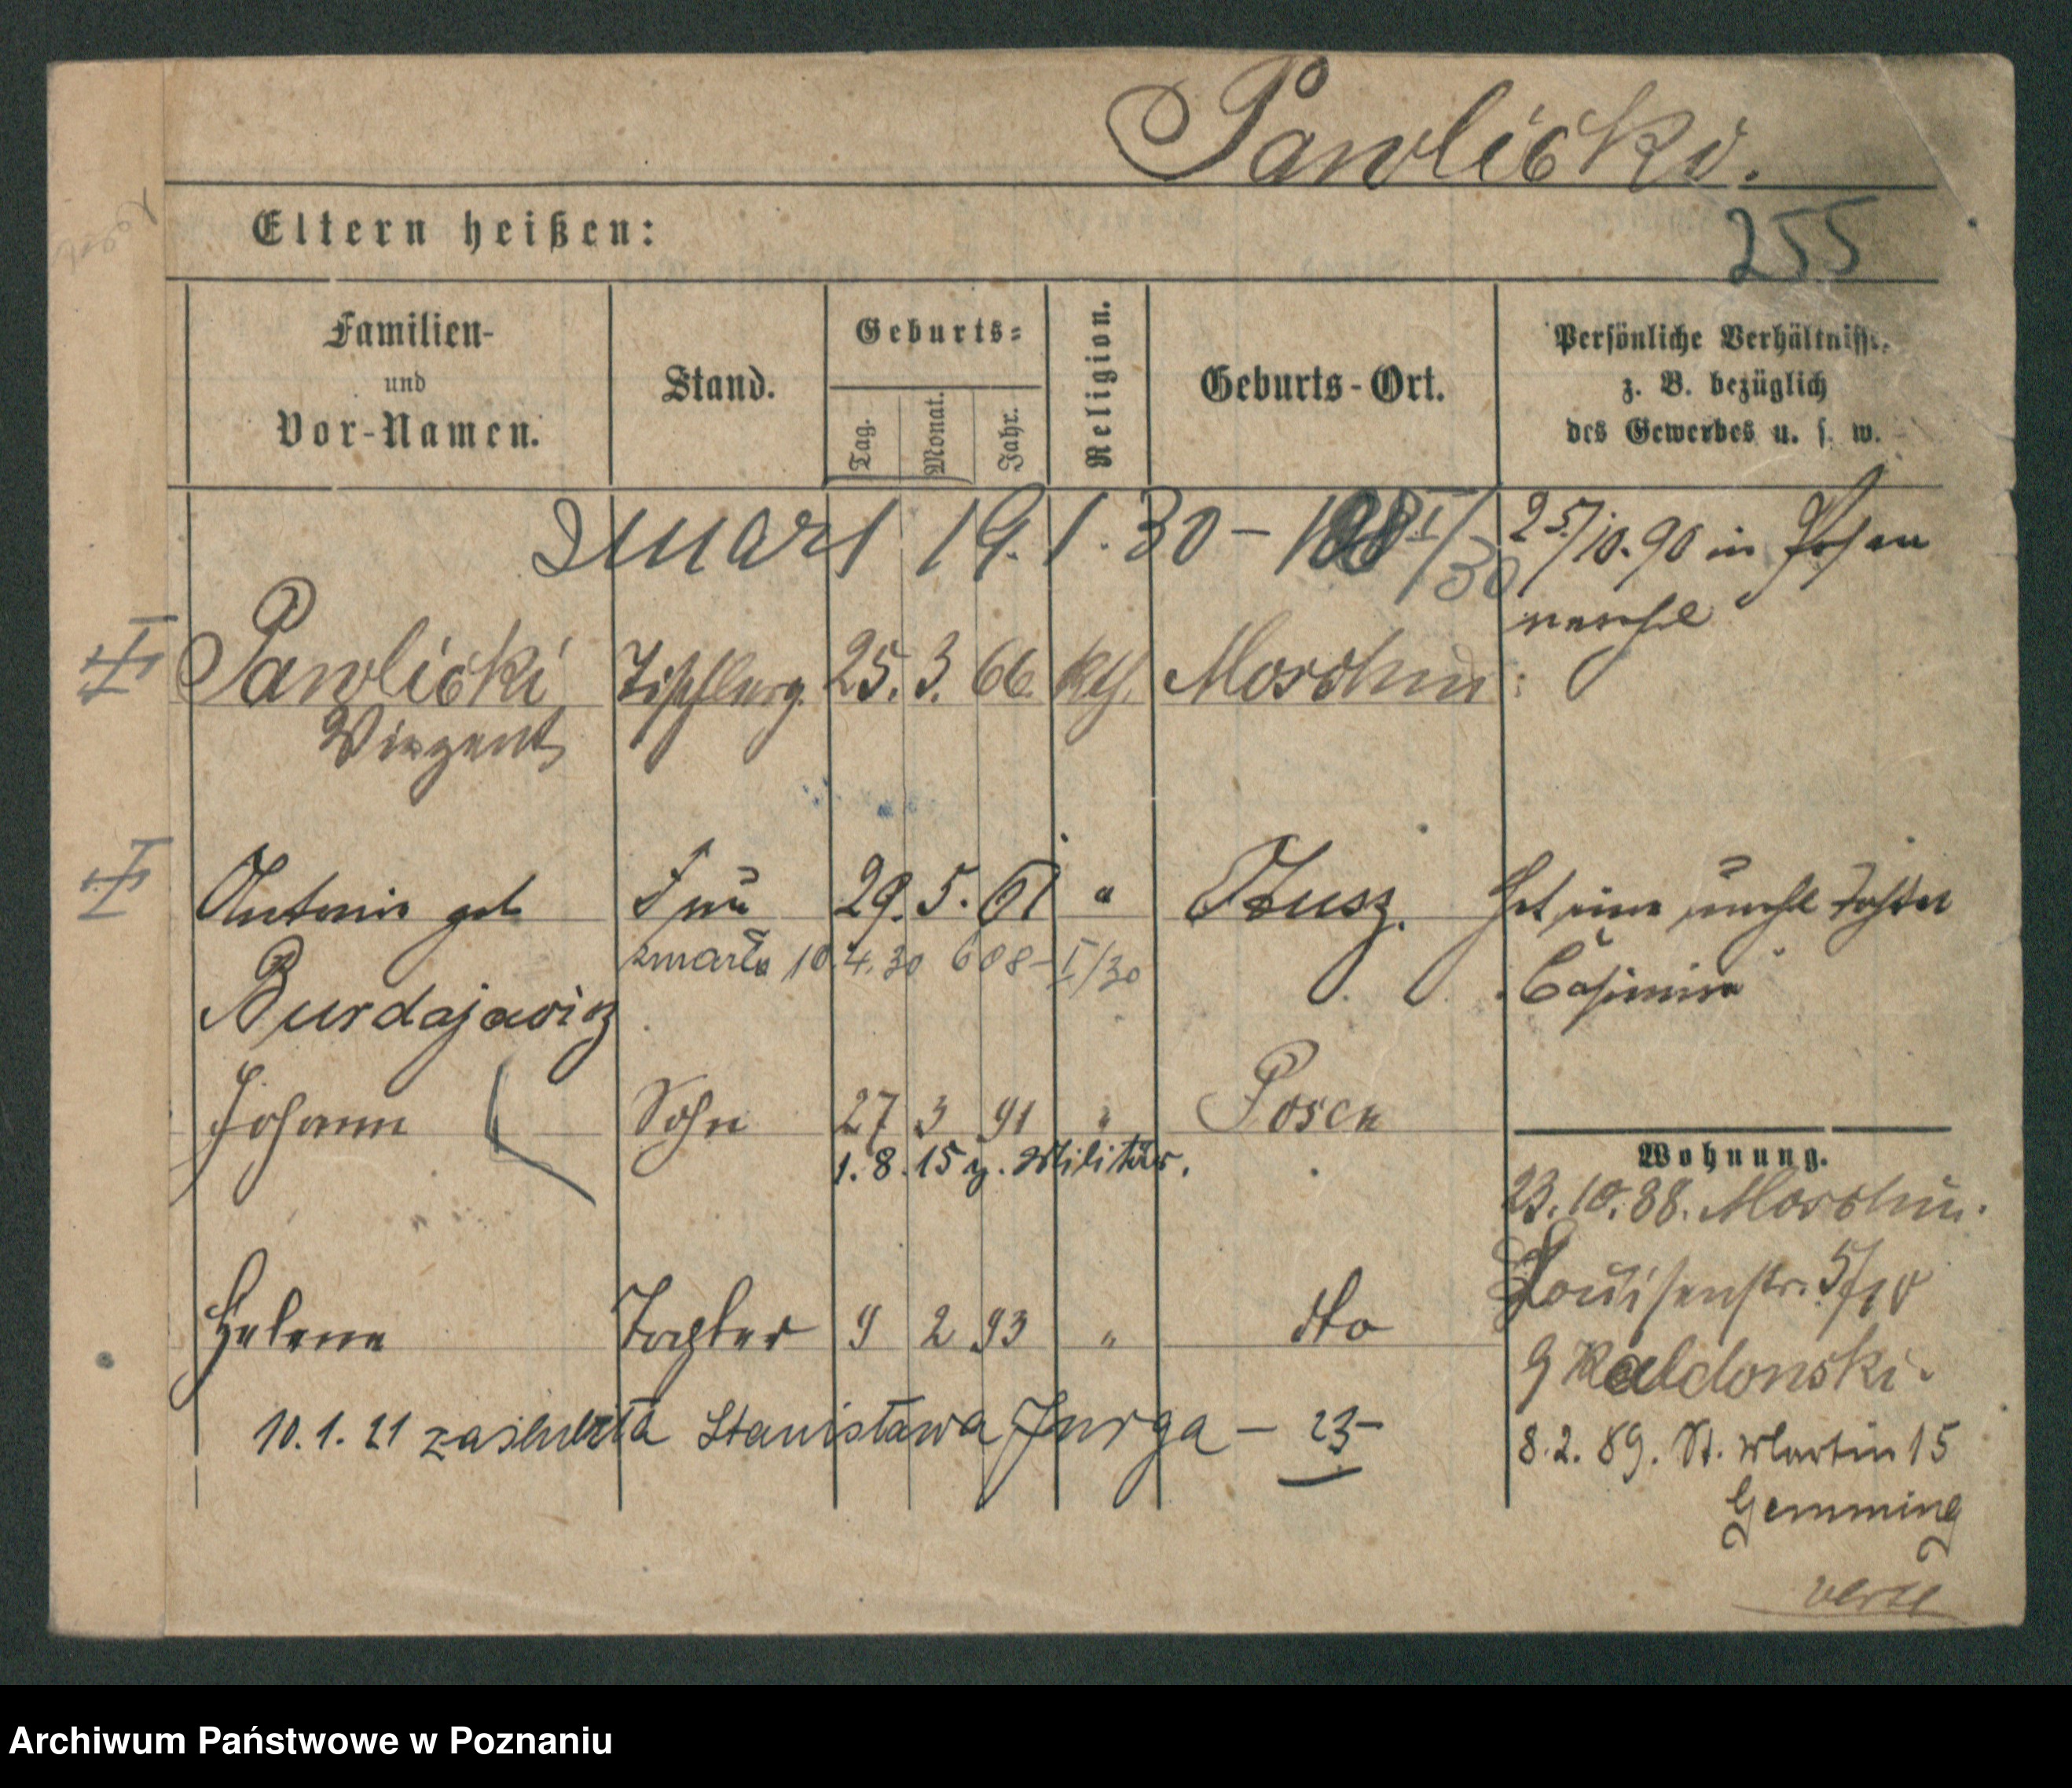 Pawlicki.
255
Eltern heißen:
Familien- und Vor-Namen.
Stand.
Geburts-
Tag. Monat. Jahr.
Religion.
Geburts-Ort.
Persönliche Verhältnisse,
z. B. bezüglich
des Gewerbes u. s. w.
zmarł 19.1.30 - I/30
25/10.90 in Posen
verehl
Pawlicki 25. 3. 66. kth. Moschin
Vinzent
Antonie geb Frau 29. 5. 61 " Xusz. Hat eine unehl Tochter
zmarła 10.4.30 608-I/30
Casimira
Burdajewicz
Johann Sohn 27 3 91 " Posen
1.8.15 z. Militär.
Wohnung.
23.10.88. Moschin.
Louisenstr. 5/10
Helene Tochter 9 2 93 " dto
Kaldonski.
10.1.21 zaślubiła Stanisława Jurga - 23 -
8.2.89. St. Martin 15
Gemming
verte
Archiwum Państwowe w Poznaniu